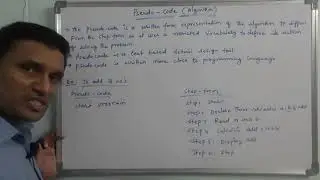 Pseudo-code (Algorithm)
• The pseudo code is a written form representation of the algorithm. It differs
from the step form as it uses a restricted vocabulary to define its action
of solving the problem.
• Pseudo-code is a text based detail design tool.
• pseudo-code is written more close to programming language
Ex: To add 2 no's
Pseudo-code
Start program
Step-form
Step 1: Start
Step 2: Declare three variables a, b & add
Step 3: Read a and b
Step 4: Calculate add = a+b
Step 5: Display add
Step 6: Stop